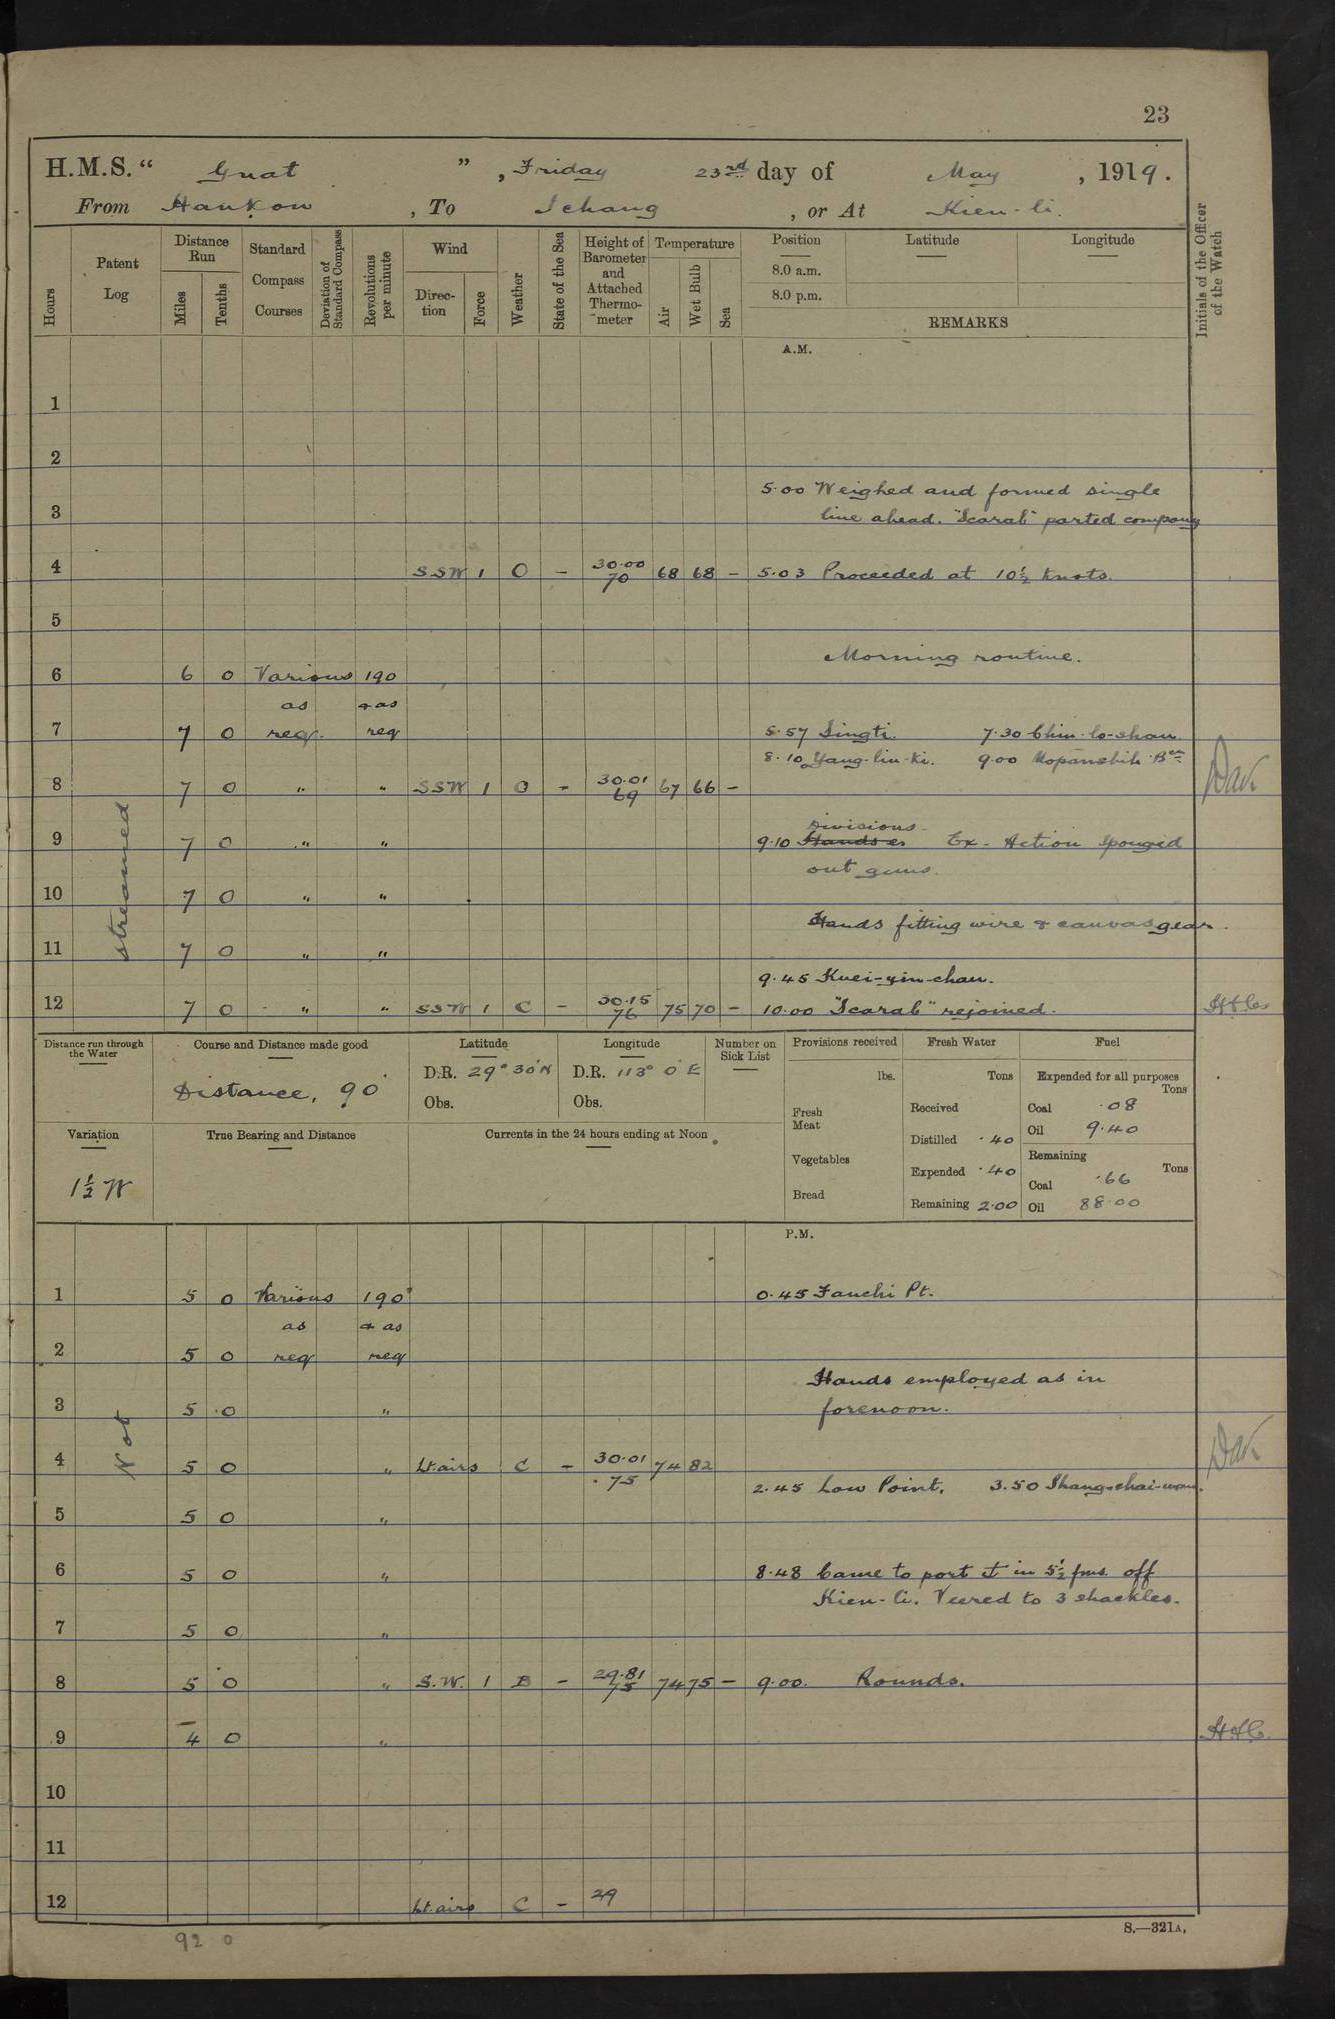 23
H.M.S. “ Gnat ” , Friday 23rd day of May , 1919.
From Hankow , To Ichang , or At Kien-li.
Hours
Patent Log
Distance Run
Miles
Tenths
Standard Compass Courses
Deviation of Standard Compass
Revolutions per minute
Wind
Direc-tion
Force
Weather
State of the Sea
Height of Barometer and Attached Thermo-meter
Temperature
Air
Wet Bulb
Sea
Position
8.0 a.m.
8.0 p.m.
Latitude
Longitude
REMARKS
Initials of the Officer of the Watch
A.M.
1
2
5.00 Weighed and formed single
3 line ahead. "Scarab" parted company
4 SSW 1 O – 30.00 70 68 68 – 5.03 Proceeded at 10½ knots.
5
Morning routine.
6 6 0 Various 190
as & as
7 7 0 req. req 5.57 Singti. 7.30 Chin-lo-shan
8.10 Yang-lin-ki. 9.00 Mopanshih Bcn
8 7 0 " " SSW 1 O – 30.01 69 67 66 – Dav
Divisions
9 7 0 " " 9.10 Hands er Ex- Action Sponged
out guns.
10 7 0 " "
Hands fitting wire & canvas gear.
11 7 0 " "
9.45 Kuei-yin-chau.
12 7 0 " " SSW 1 C – 30.15 76 75 70 – 10.00 "Scarab" rejoined.
streamed
Distance run through the Water
Course and Distance made good
Distance, 90'
Latitude
D.R. 29° 30' N
Obs.
Longitude
D.R. 113° 0' E
Obs.
Number on Sick List
Provisions received
lbs.
Fresh Meat
Vegetables
Bread
Fresh Water
Tons
Received
Distilled .40
Expended .40
Remaining 2.00
Fuel
Expended for all purposes
Tons
Coal .08
Oil 9.40
Remaining
Tons
Coal .66
Oil 88.00
Variation
1½ W
True Bearing and Distance
Currents in the 24 hours ending at Noon
P.M.
1 5 0 Various 190 0.45 Fanchi Pt.
as & as
2 5 0 req req
Hands employed as in
3 5 0 " forenoon.
4 5 0 " Lt. airs C – 30.01 75 74 82 Dav
2.45 Low Point. 3.50 Shang-chai-wan.
5 5 0 "
6 5 0 " 8.48 Came to port ⚓ in 5½ fms. off
Kien-li. Veered to 3 shackles.
7 5 0 "
8 5 0 " S.W. 1 B – 29.81 75 74 75 – 9.00. Rounds.
9 4 0 "
10
11
12 Lt. airs C – 29
Not
92 0
S.—321A.